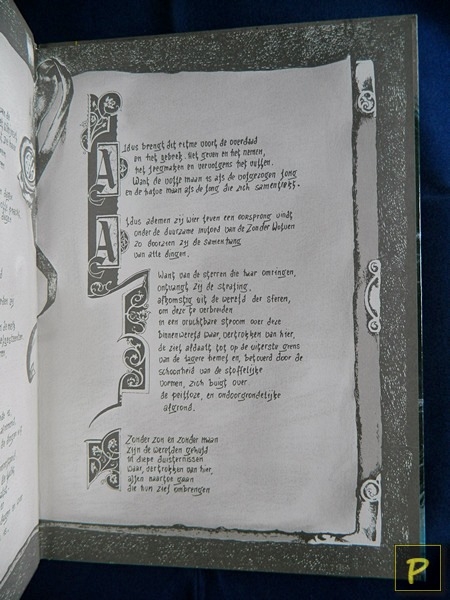 Aldus brengt dit ritme voort de overdaad
en het gebrek. Het geven en het nemen,
het leegmaken en vervolgens het vullen.
Want de volle maan is als de volgezogen long
en de halve maan als de long die zich samentrekt.
Aldus ademen zij wier leven een oorsprong vindt
onder de duurzame invloed van de Zonder
Zo doorzien zij de samenhang
van alle dingen.
Want van de sterren die haar omringen,
ontvangt zij de straling.
afkomstig uit de wereld der sferen,
om deze te verbreiden
in een vruchtbare stroom over deze
binnenwereld waar, vertrokken van hier,
de ziel afdaalt tot op de uiterste grens
van de lagere hemel en, betoverd door de
schoonheid van de stoffelijke
vormen, zich buigt over
de peilloze, en ondoorgrondelijke
afgrond.
Zonder zon en zonder maan
zijn de werelden gehuld
in diepe duisternissen
waar, vertrokken van hier,
allen naartoe gaan
die hun ziel ombrengen
P